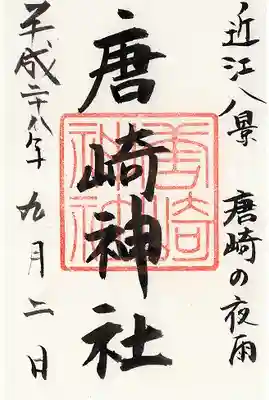 近江八景 唐崎の夜雨
唐崎神社
平成二十八年 九月二日